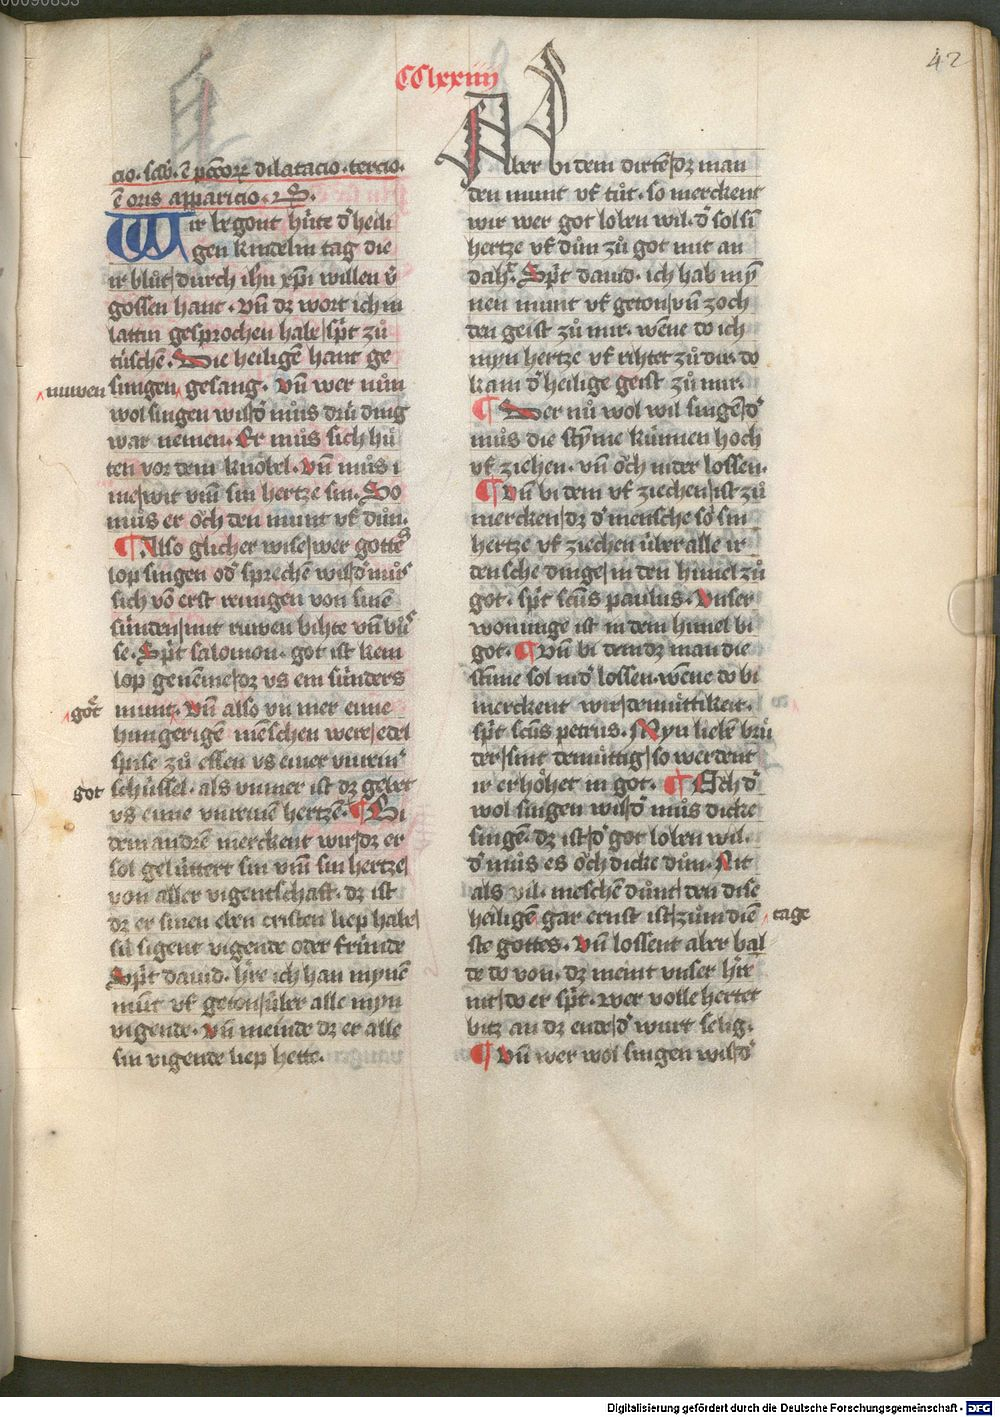 00090853
42
CClxxiiii
cio. scđ. ē pc̄c̄oꝝ dilatacio. tercio.
ē oris apparicio. S.
Wir begont hu̍te dˀ heili
gen kindelin tag die
ir blůt durch ihu̅ xp̅i willen vˀ
gossen hant. Vn̄ dz wort ich in
lattin gesprochen habe sp̄t zů
tu̍schē. Die heiligē hant ge
nuwen
sungen gesang. Vn̄ wer nůn
wol singen wil dˀ můs dru̍ ding
war nemen. Er můs sich hů
ten vor dem knobel. Vn̄ můs i
me wit vm̄ sin hertze sin. So
můs er ǒch den munt vf důn.
¶ Also glicher wise wer gottes
lop singen odˀ sprechē wil dˀ můs
sich vō erst reinigen von sinē
su̍nden mit ruwen bihte vn̄ bůs
se. Sp̄t salomon. got ist kein
lop genēme dz vs em su̍nders
gǒt
munt. Vn̄ also vnmer eime
hungerigē mēschen were edel
spise zů essen vs einer vnreinē
got
schu̍ssel. als vnmer ist dz gebet
vs eime vnreinē hertzē. ¶ Bi
dem andrē merckent wir dz er
sol gelu̍ttert sin vm̄ sin hertze
von aller vigentschaft. dz ist
dz er sinen eben cristen liep habe
su̍ sigent vigende oder fru̍nde
Sp̄t dauid. h̄re ich han mynē
mu̅t vf geton u̍ber alle myn
vigende. Vn̄ meinde dz er alle
sin vigende liep hette.
Aber bi dem dirtē dz man
den munt vf tůt. so merckent
wir wer got loben wil. dˀ sol sī
hertze vf důn zů got mit an
daht. Sp̄t dauid. ich hab mȳ
nen munt vf geton vn̄ zoch
den geist zů mir. wēne do ich
myn hertze vf rihtet zů dir. do
kam dˀ heilige geist zů mir.
¶ Wer nů wol wil singē dˀ
můs die sty̅me ku̍nnen hoch
vf ziehen. vn̄ ǒch nider lossen.
¶ Vn̄ bi dem vf ziechen ist zů
mercken dz dˀ mensche so sin
hertze vf ziechen u̍ber alle ir
densche dinge in den himel zů
got. sp̄t sc̄us paulus. Vnser
woninge ist in dem himel bi
got. ¶ Vn̄ bi dem dz man die
stim̄e sol nidˀ lossen. wēne do bi
merckent wir demůttikeit.
sp̄t sc̄us petrus. Myn lieben bru̍
der sint demu̍ttig so werdent
ir erhǒhet in got. ¶ Och dˀ
wol singen wil dˀ můs dicke
singē. dz ist dˀ got loben wil.
dˀ můs es ǒch dicke důn. Nit
als vil mēschen důnt den dise
heiligē gar ernst ist zům dien
tage
ste gottes. Vn̄ lossent aber bal
de do von. dz meint vnser h̄re
nit do er sp̄t. wer volle hertet
bitz an dz ende dˀ wurt selig.
¶ Vn̄ wer wol singen wil dˀ
Digitalisierung gefördert durch die Deutsche Forschungsgemeinschaft - DFG